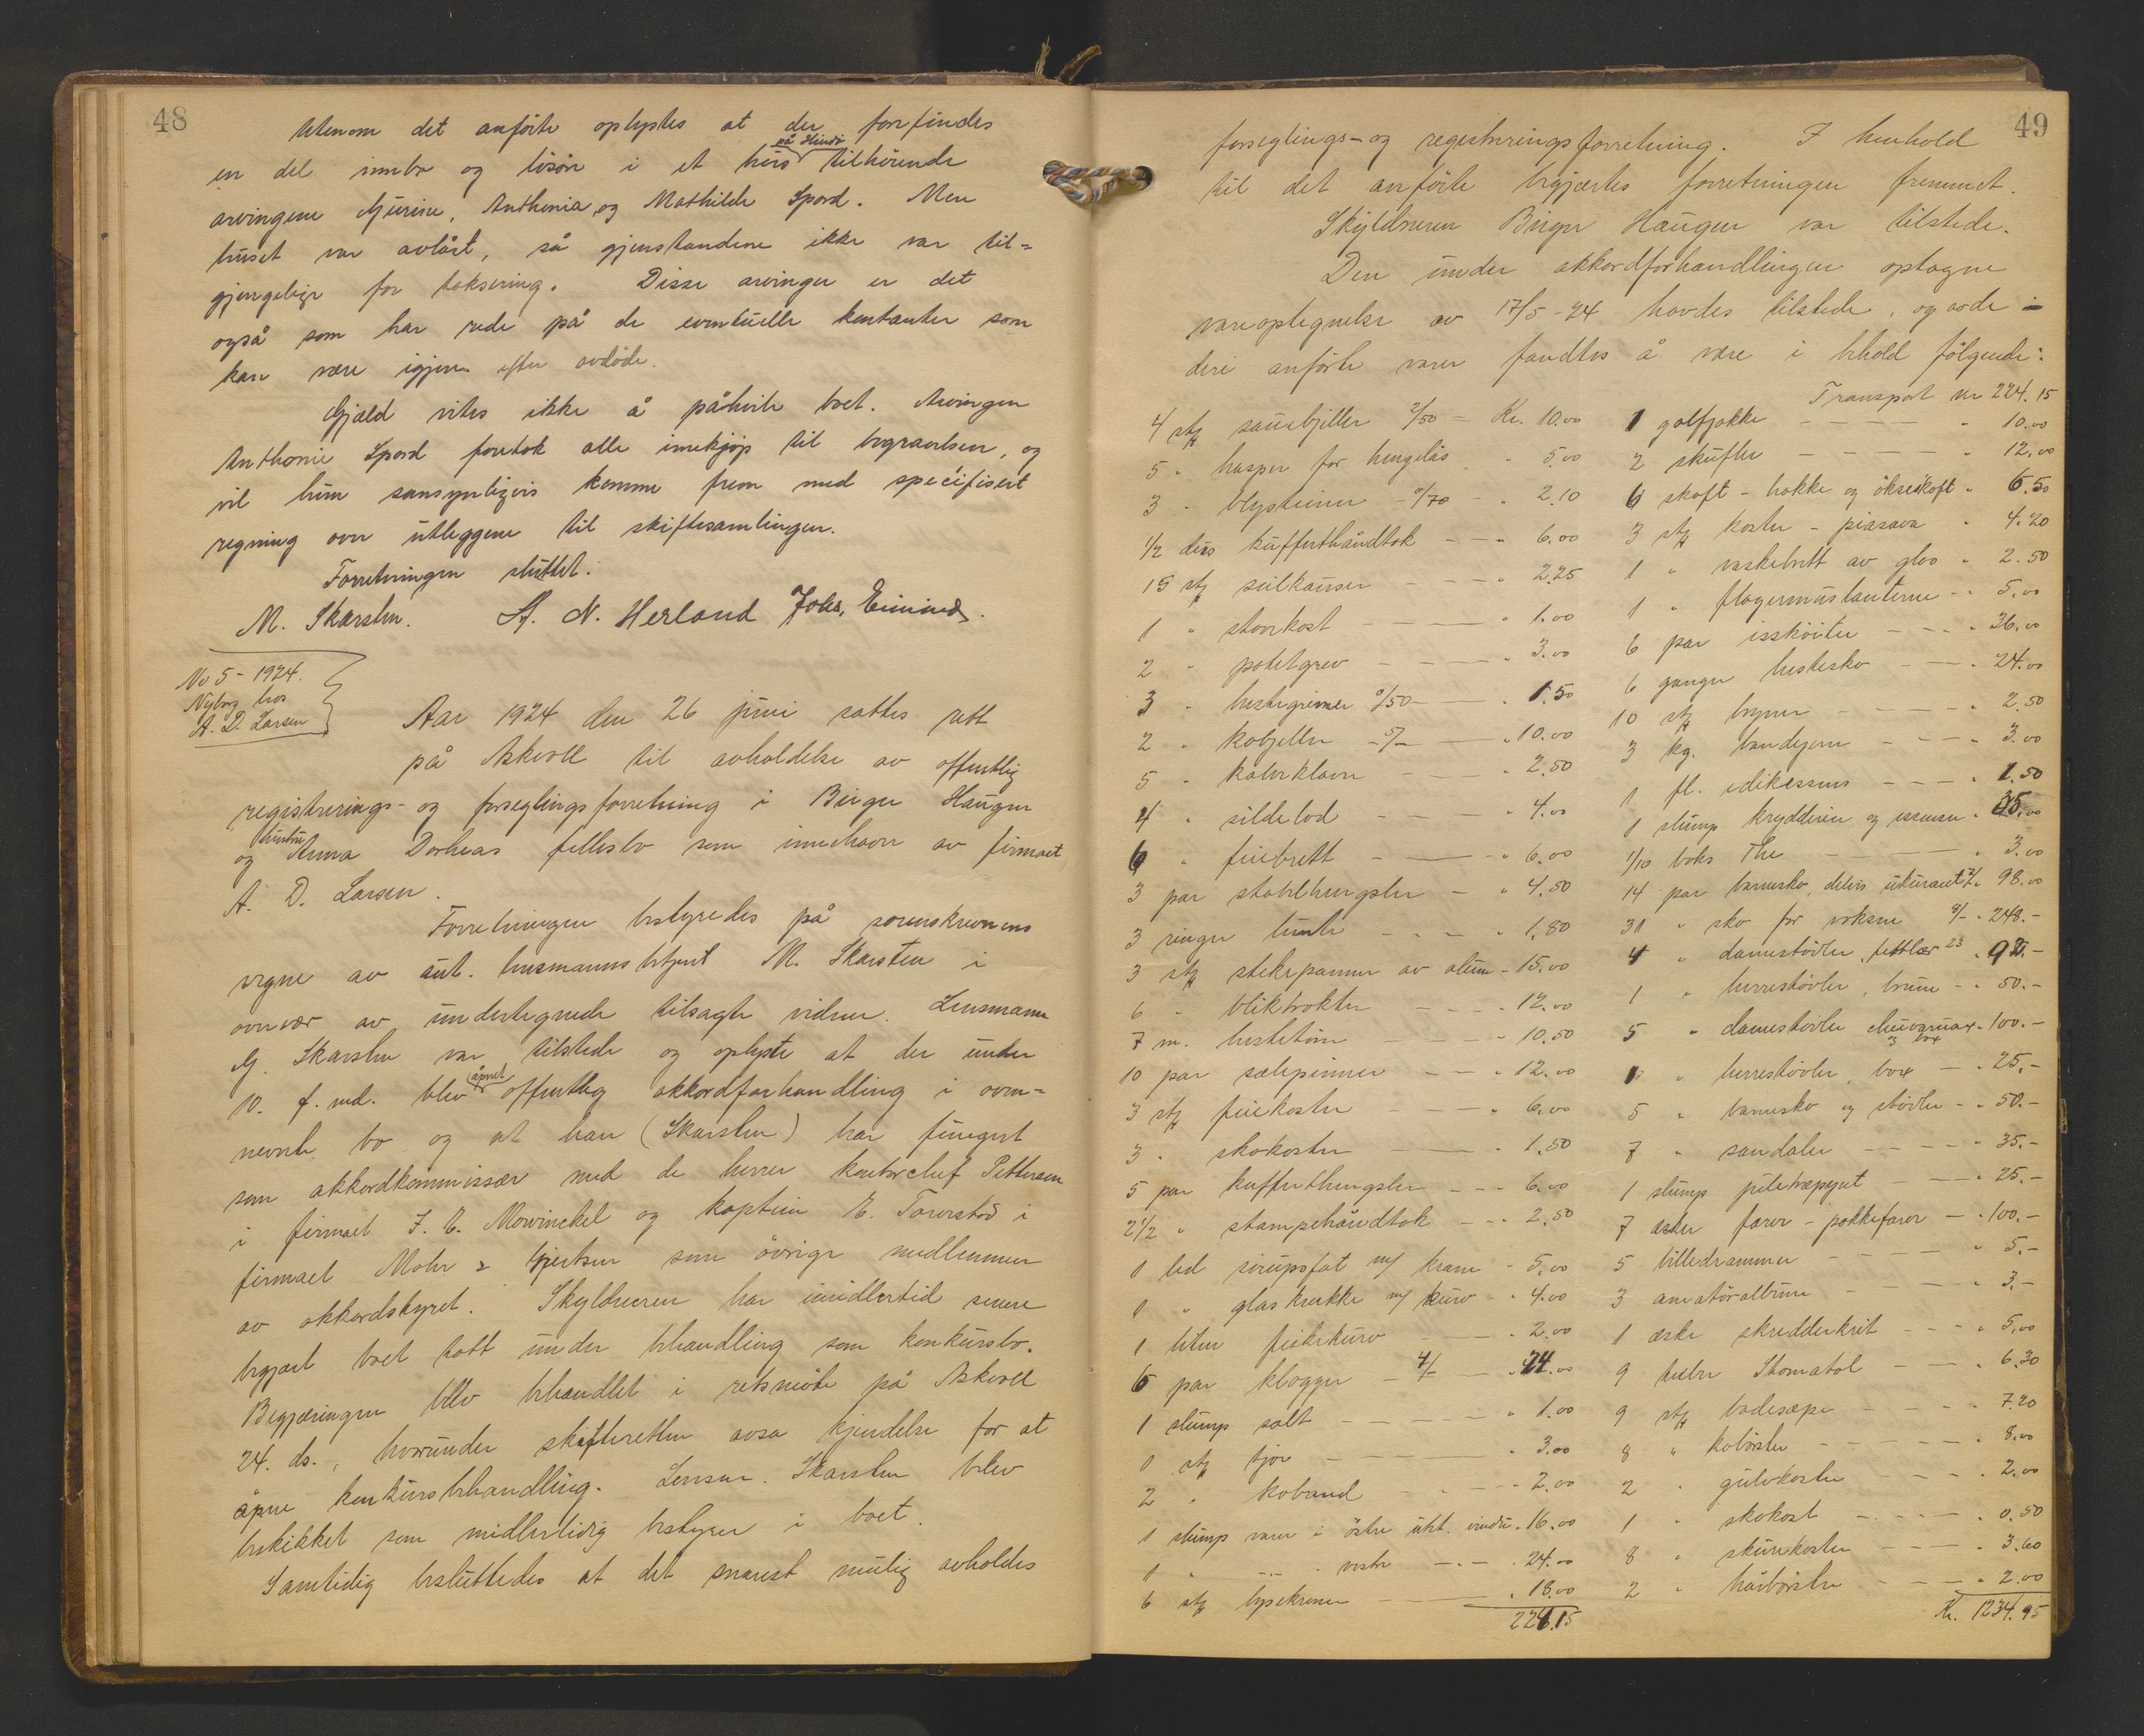 48
Utenom det anførte oplystes at der forefindes
en del innbo og løsøre i et hus på Hindø tilhørende
arvingene Gjurine, Anthonia og Mathilde Spord. Men
huset var avlåst, så gjenstandene ikke var til=
gjengelige for taksering. Disse arvinger er det
også som har rede på de eventuelle kontanter som
kan være igjen efter avdøde.
Gjæld vites ikke å påhvile boet. Arvingen
Anthonie Spord foretok alle innkjøp til begravelsen, og
vil hun sansynligvis komme frem med specifisert
regning over utleggene til skiftesamlingen.
Forretningen sluttet.
M. Skarsten. A. N. Herland Johs. Eimind.
No 5 - 1924.
Nyborg hos
A. D. Larsen
Aar 1924 den 26 juni sattes rett
på Askvoll til avholdelse av offentlig
registrerings- og forseglingsforretning i Birger Haugen
og hustru Anna Dorheas fellesbo som innehaver av firmaet
A. D. Larsen.
Forretningen bestyredes på sorenskriverens
vegne av aut. lensmannsbetjent M. Skarsten i
overvær av undertegnede tilsagte vidner. Lensmann
G. Skarsten var tilstede og oplyste at der under
10. f. md. blev åpnet offentlig akkordforhandling i oven=
nevnte bo og at han (Skarsten) har fungert
som akkordkommissær med de herrer kontorchef Pettersen
i firmaet J. E. Mowinckel og kaptein E. Torvestad i
firmaet Mohr & Gjertsen som øvrige medlemmer
av akkordstyret. Skyldneren har imidlertid senere
begjært boet tatt under behandling som konkursbo.
Begjæringen blev behandlet i retsmøte på Askvoll
24. ds., hvorunder skifteretten avsa kjendelse for at
åpne konkursbehandling. Lensm. Skarsten blev
beskikket som midlertidig bestyrer i boet.
Samtidig besluttedes at det snarest mulig avholdes
49
forseglings- og registreringsforretning. I henhold
til det anførte begjærtes forretningen fremmet.
Skyldneren Birger Haugen var tilstede.
Den under akkordforhandlingen optagne
vareoptegnelse av 17/5-24 havdes tilstede, og av de i
deri anførte varer fandtes å være i behold følgende:
4 stk sauebjeller 2/50 - Kr. 10.00
5 " hasper for hengelås " 5.00
3 " blysteiner - 0/70 - " 2.10
1/2 dus kufferthåndtak - - " 6.00
15 stk seilkauser - - - " 2.25
1 " stovekost - - - " 1.00
2 " potetgrev - - - " 3.00
3 " hestegrimer 0/50 - - " 1.50
2 " kobjeller - 5/- - " 10.00
5 " kalveklaver - - - " 2.50
4 " sildelod - - - " 4.00
6 " feiebrett - - - " 6.00
3 par stabelhengsler - " 4.50
3 ringer lunte - - - " 1.80
3 stk stekepanner av alum - 15.00
6 " bliktrakter - - - " 12.00
7 m. hestetøm - - - " 10.50
10 par selepinner - - " 12.00
3 stk feiekoster - - - " 6.00
3 " skokoster - - - " 1.50
5 par kufferthengsler - - - 6.00
2 1/2 " stampehåndtak - - - 2.50
1 led sirupsfat m/ krane - 5.00
1 " glaskrukke m/ kurv - " 4.00
1 liten fiskekurv - - - 2.00
6 par klogger - 4/- - " 24.00
1 slump salt - - - " 1.00
1 stk tjøre - - - " 3.00
2 " koband - - - 2.00
1 slump varer i østre utst. vindu " 16.00
1 " - " - " vestre - " - " 24.00
6 stk lysekroner - - - " 18.00
224.15
Transport kr 224.15
1 golfjakke - - - - " 10.00
2 skufler - - - - " 12.00
6 skaft - hakke og økseskaft " 6.50
3 stk koster - piasava " 4.20
1 " vaskebrett av glas " 2.50
1 " flagermuslanterne - " 5.00
6 par isskøiter - - - " 36.00
6 ganger hestesko - - " 24.00
10 stk bryner - - - " 2.50
3 kg. bandejern - - - " 3.00
1 fl. edikessens - - - " 1.50
1 slump krydderier og essenser " 35.00
1/10 boks The - - - " 3.00
14 par barnesko, delvis ukurant 7/- " 98.00
31 " sko for voksne 8/- " 248.-
4 " damestøvler, fettlær 23 " 92.-
1 " herrestøvler, brune - " 50.-
5 " damestøvler chevreaux " 100.-
3 box
1 " herrestøvler, box - " 25.-
5 " barnesko og støvler - " 50.-
7 " sandaler - - - " 35.-
1 slump juletræpynt - - " 25.-
7 esker farver - pakkefarver - " 100.-
5 billedrammer - - - " 5.-
3 amatøralbum - - - " 3.-
1 æske skredderkrit - - - " 5.00
9 tuber Stomatol - - - " 6.30
9 stk badesæpe - - - " 7.20
8 " kobørster - - - " 8.00
2 " gulvkoster - - - " 2.00
1 " skokost - - - " 0.50
8 " skurekoster - - - " 3.60
2 " hårbørster - - - " 2.00
Kr. 1234.95